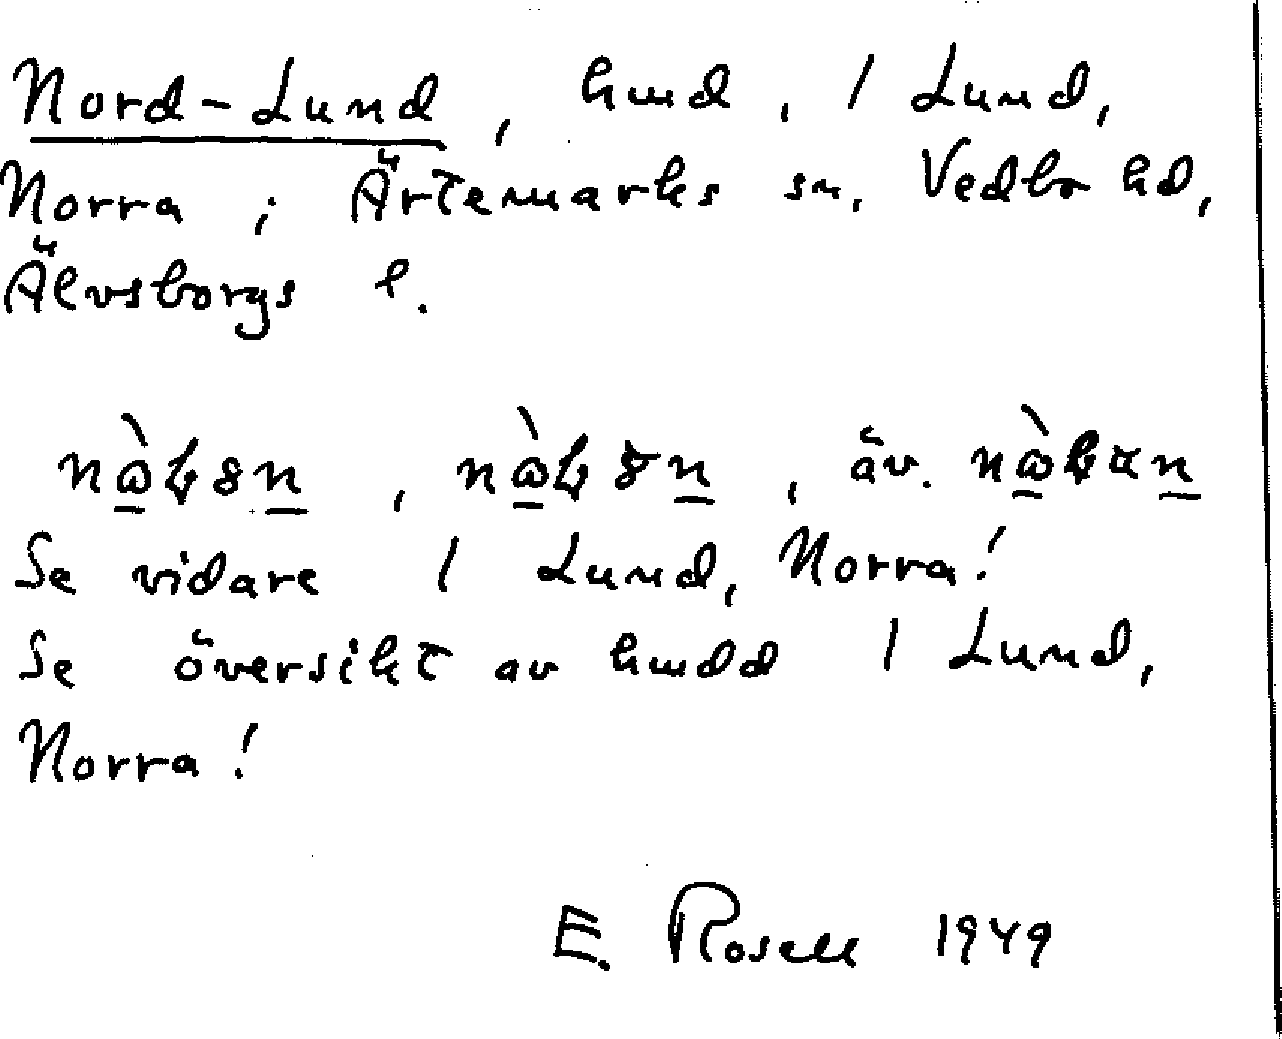 Nord-Lund, hmd, 1 Lund,
Norra i Ärtemarks sn, Vedbo hd,
Älvsborgs l.
, , äv.
Se vidare 1 Lund, Norra!
Se översikt av hmdd 1 Lund,
Norra!
E. Rosell 1949